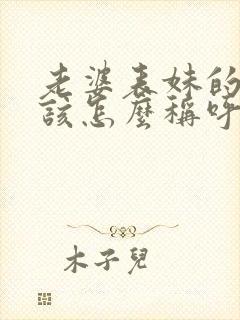 老婆表妹的
該怎麼稱呼
木子兒